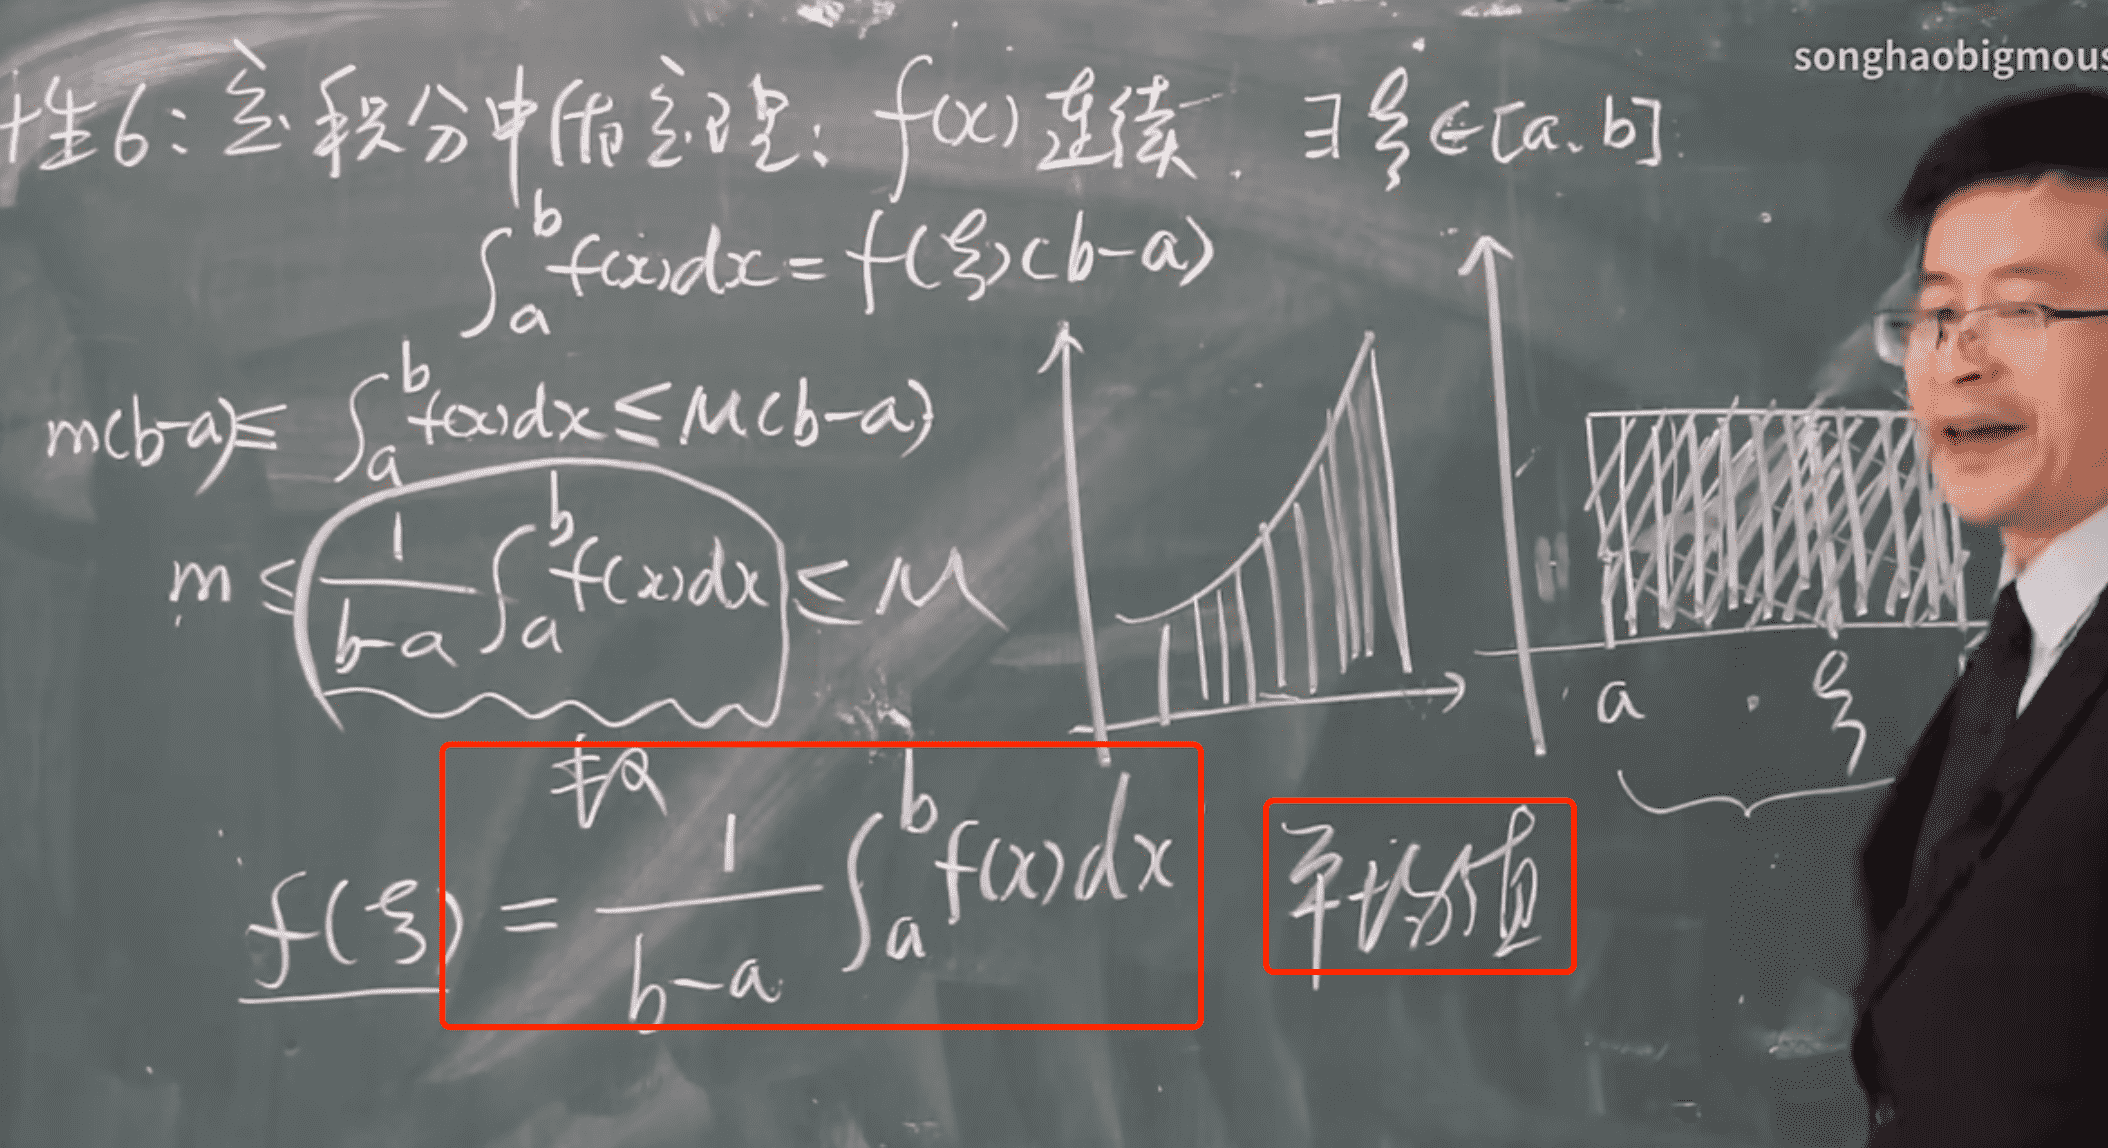 songhaobigmous
性6:定积分中值定理: f(x)连续. ∃ξ∈[a、b].
∫_a^b f(x)dx=f(ξ)(b-a)
m(b-a)≤ ∫_a^b f(x)dx≤M(b-a)
m≤ 1/(b-a) ∫_a^b f(x)dx ≤M
f(ξ) = 1/(b-a) ∫_a^b f(x)dx
平均值
a ξ